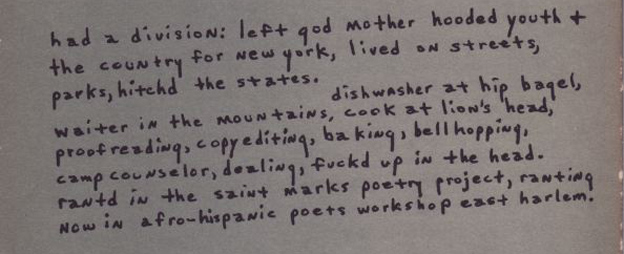 had a division: left god mother hooded youth +
the country for New york, lived on streets,
parks, hitchd the states.
dishwasher at hip bagel,
waiter in the mountains, cook at lion's head,
proofreading, copyediting, baking, bellhopping,
camp counselor, dealing, fuckd up in the head.
rantd in the saint marks poetry project, ranting
Now in afro-hispanic poets workshop east harlem.